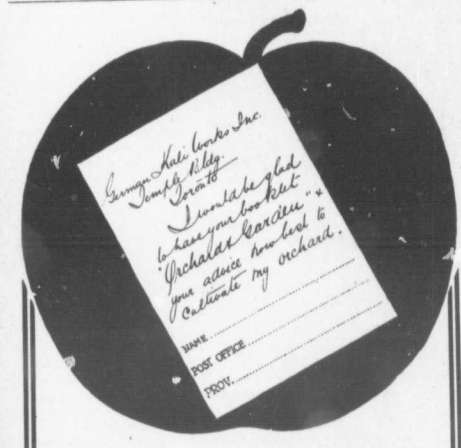 German Kali Works Inc.
Temple Bldg.
Toronto
I would be glad
to have your booklet
"Orchard & Garden" &
your advice how best to
cultivate my orchard.
NAME
POST OFFICE
PROV.